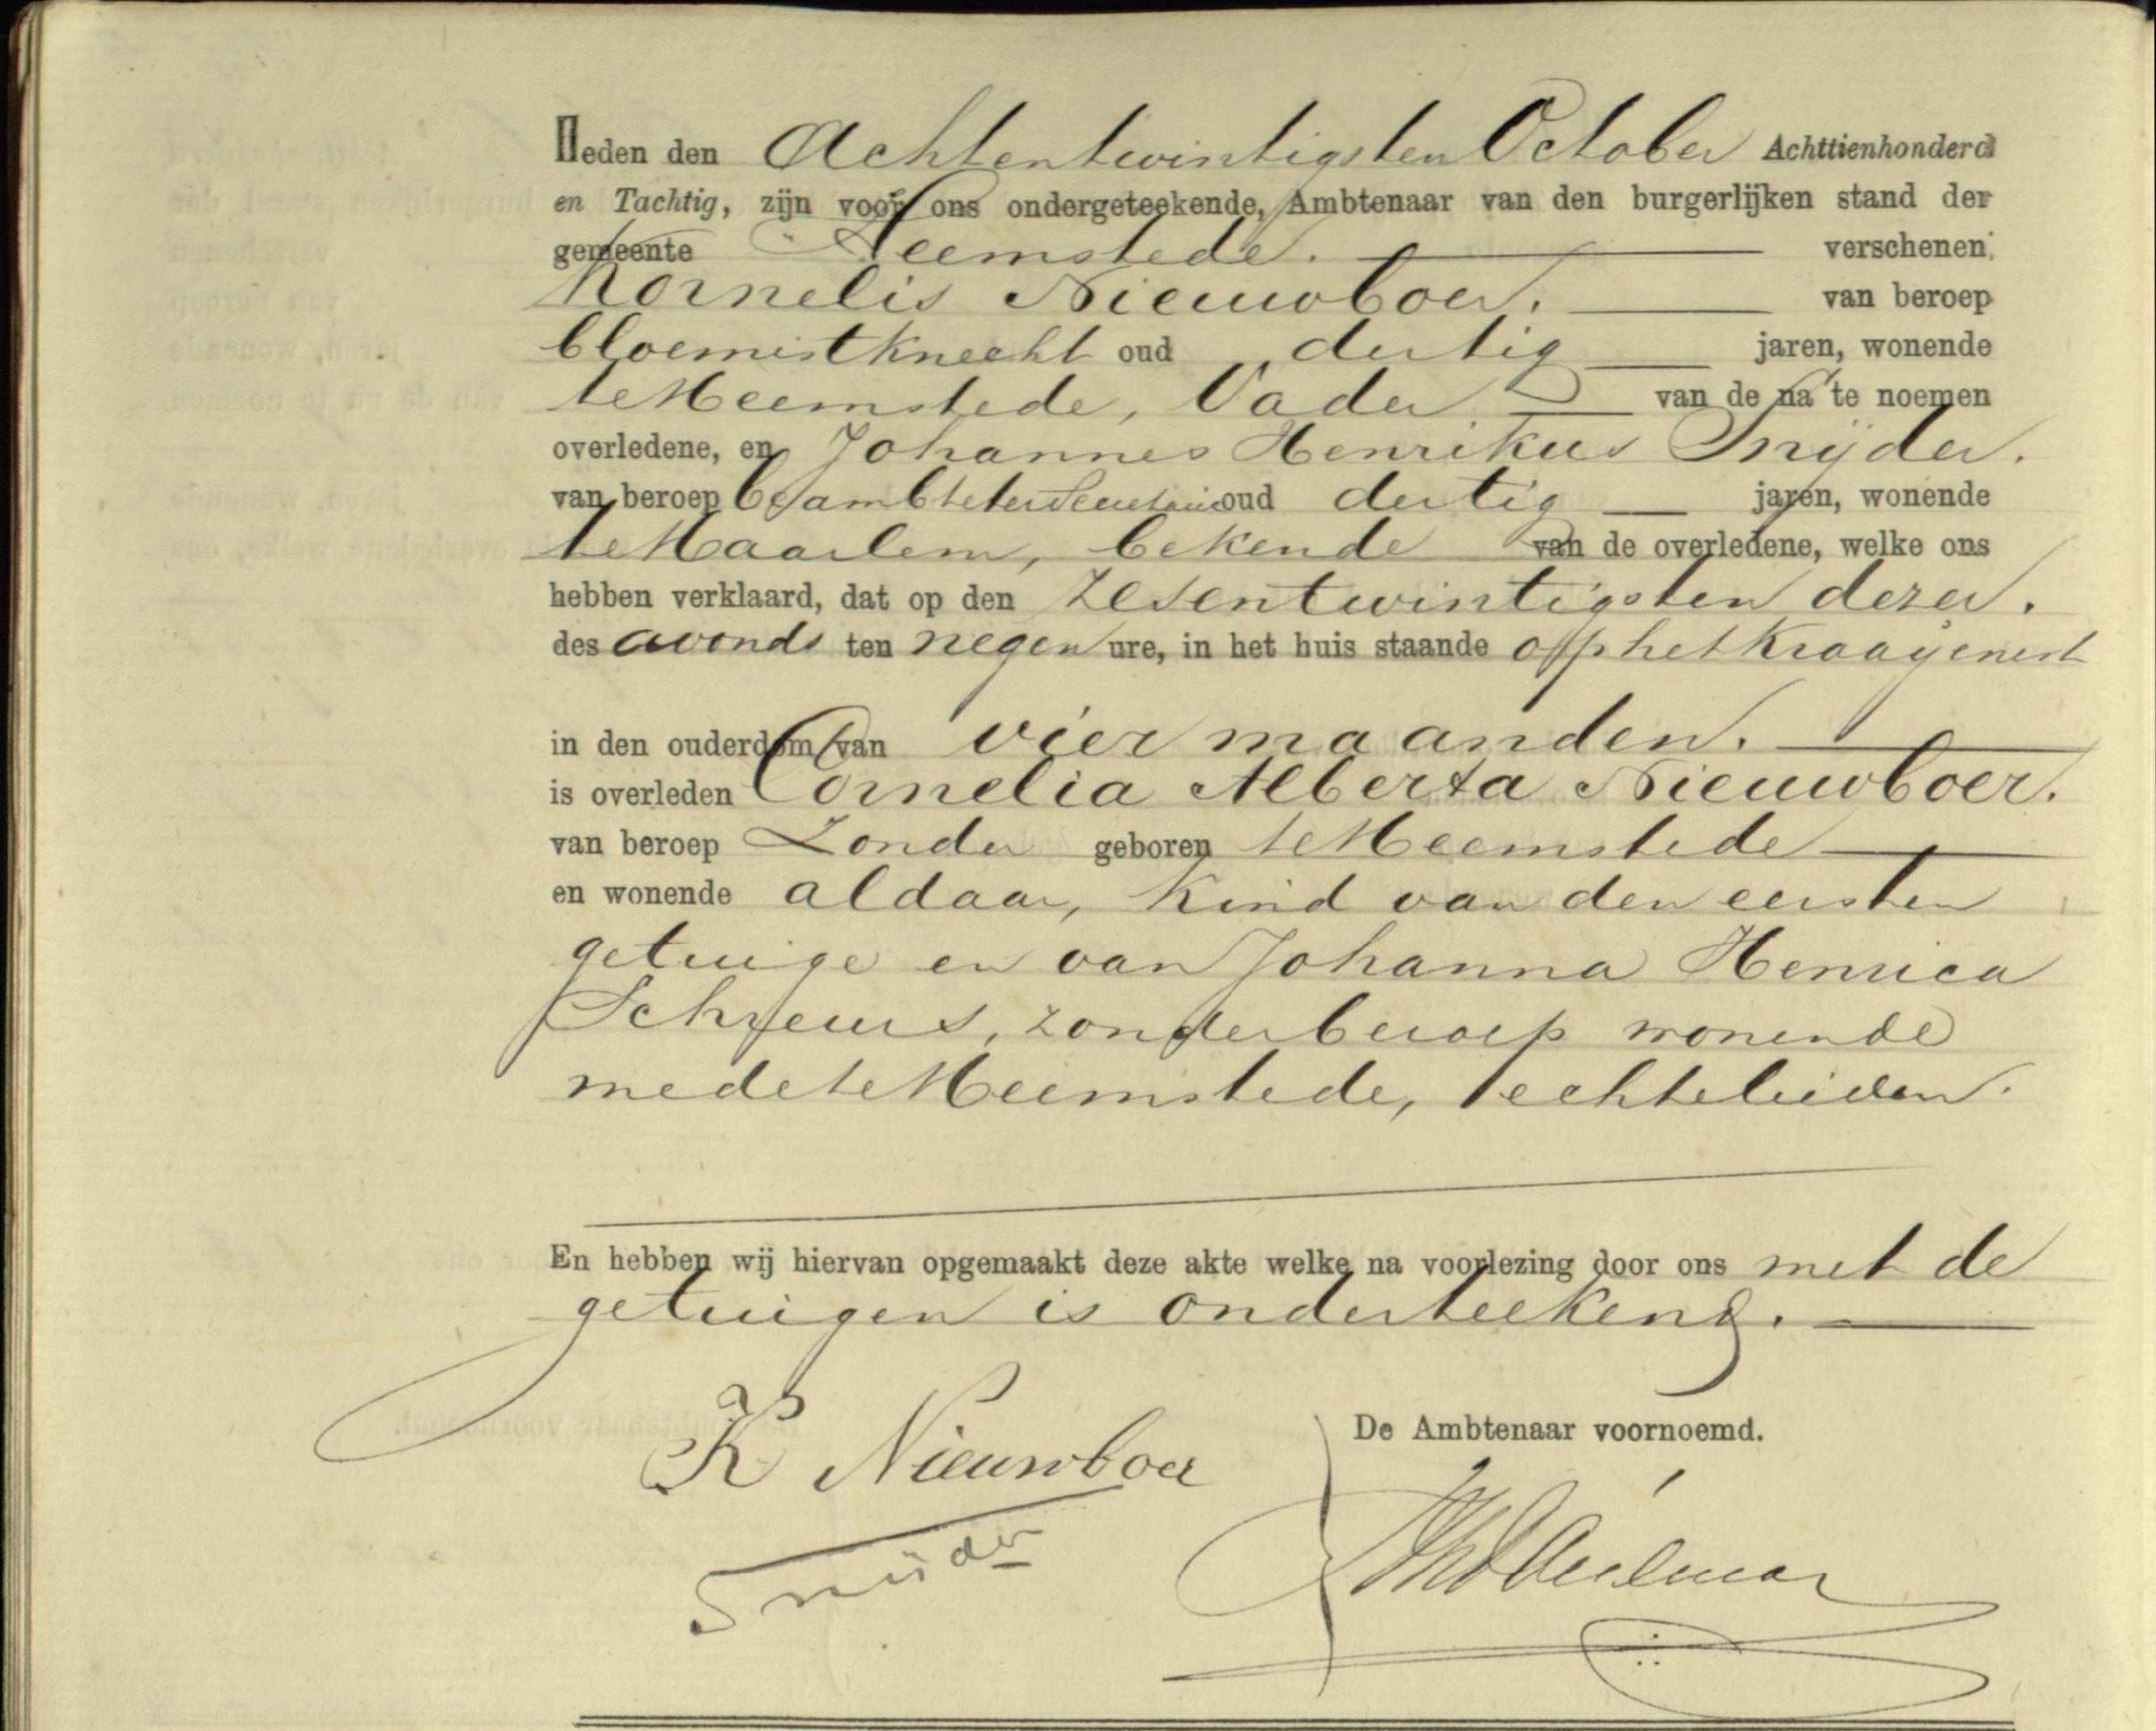 Heden den Achtentwintigsten October Achttienhonderd
en Tachtig, zijn voor ons ondergeteekende, Ambtenaar van den burgerlijken stand der
gemeente Heemstede. verschenen:
Kornelis Nieuwboer. van beroep
bloemistknecht oud dertig jaren, wonende
te Heemstede, Vader van de na te noemen
overledene, en Johannes Henrikus Snijder.
van beroep beambte ter Secretarie oud dertig jaren, wonende
te Haarlem, bekende van de overledene, welke ons
hebben verklaard, dat op den zesentwintigsten dezer.
des avonds ten negen ure, in het huis staande op het Kraayenest
in den ouderdom van vier maanden.
is overleden Cornelia Alberta Nieuwboer.
van beroep Zonder geboren te Heemstede
en wonende aldaar, Kind van den eersten
getuige en van Johanna Henrica
Schreurs, zonder beroep wonende
mede te Heemstede, echtelieden.
En hebben wij hiervan opgemaakt deze akte welke na voorlezing door ons met de
getuigen is onderteekend.
K Nieuwboer
De Ambtenaar voornoemd.
Snijder